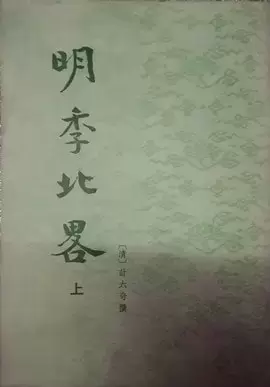 明季北畧
上
〔清〕計六奇撰